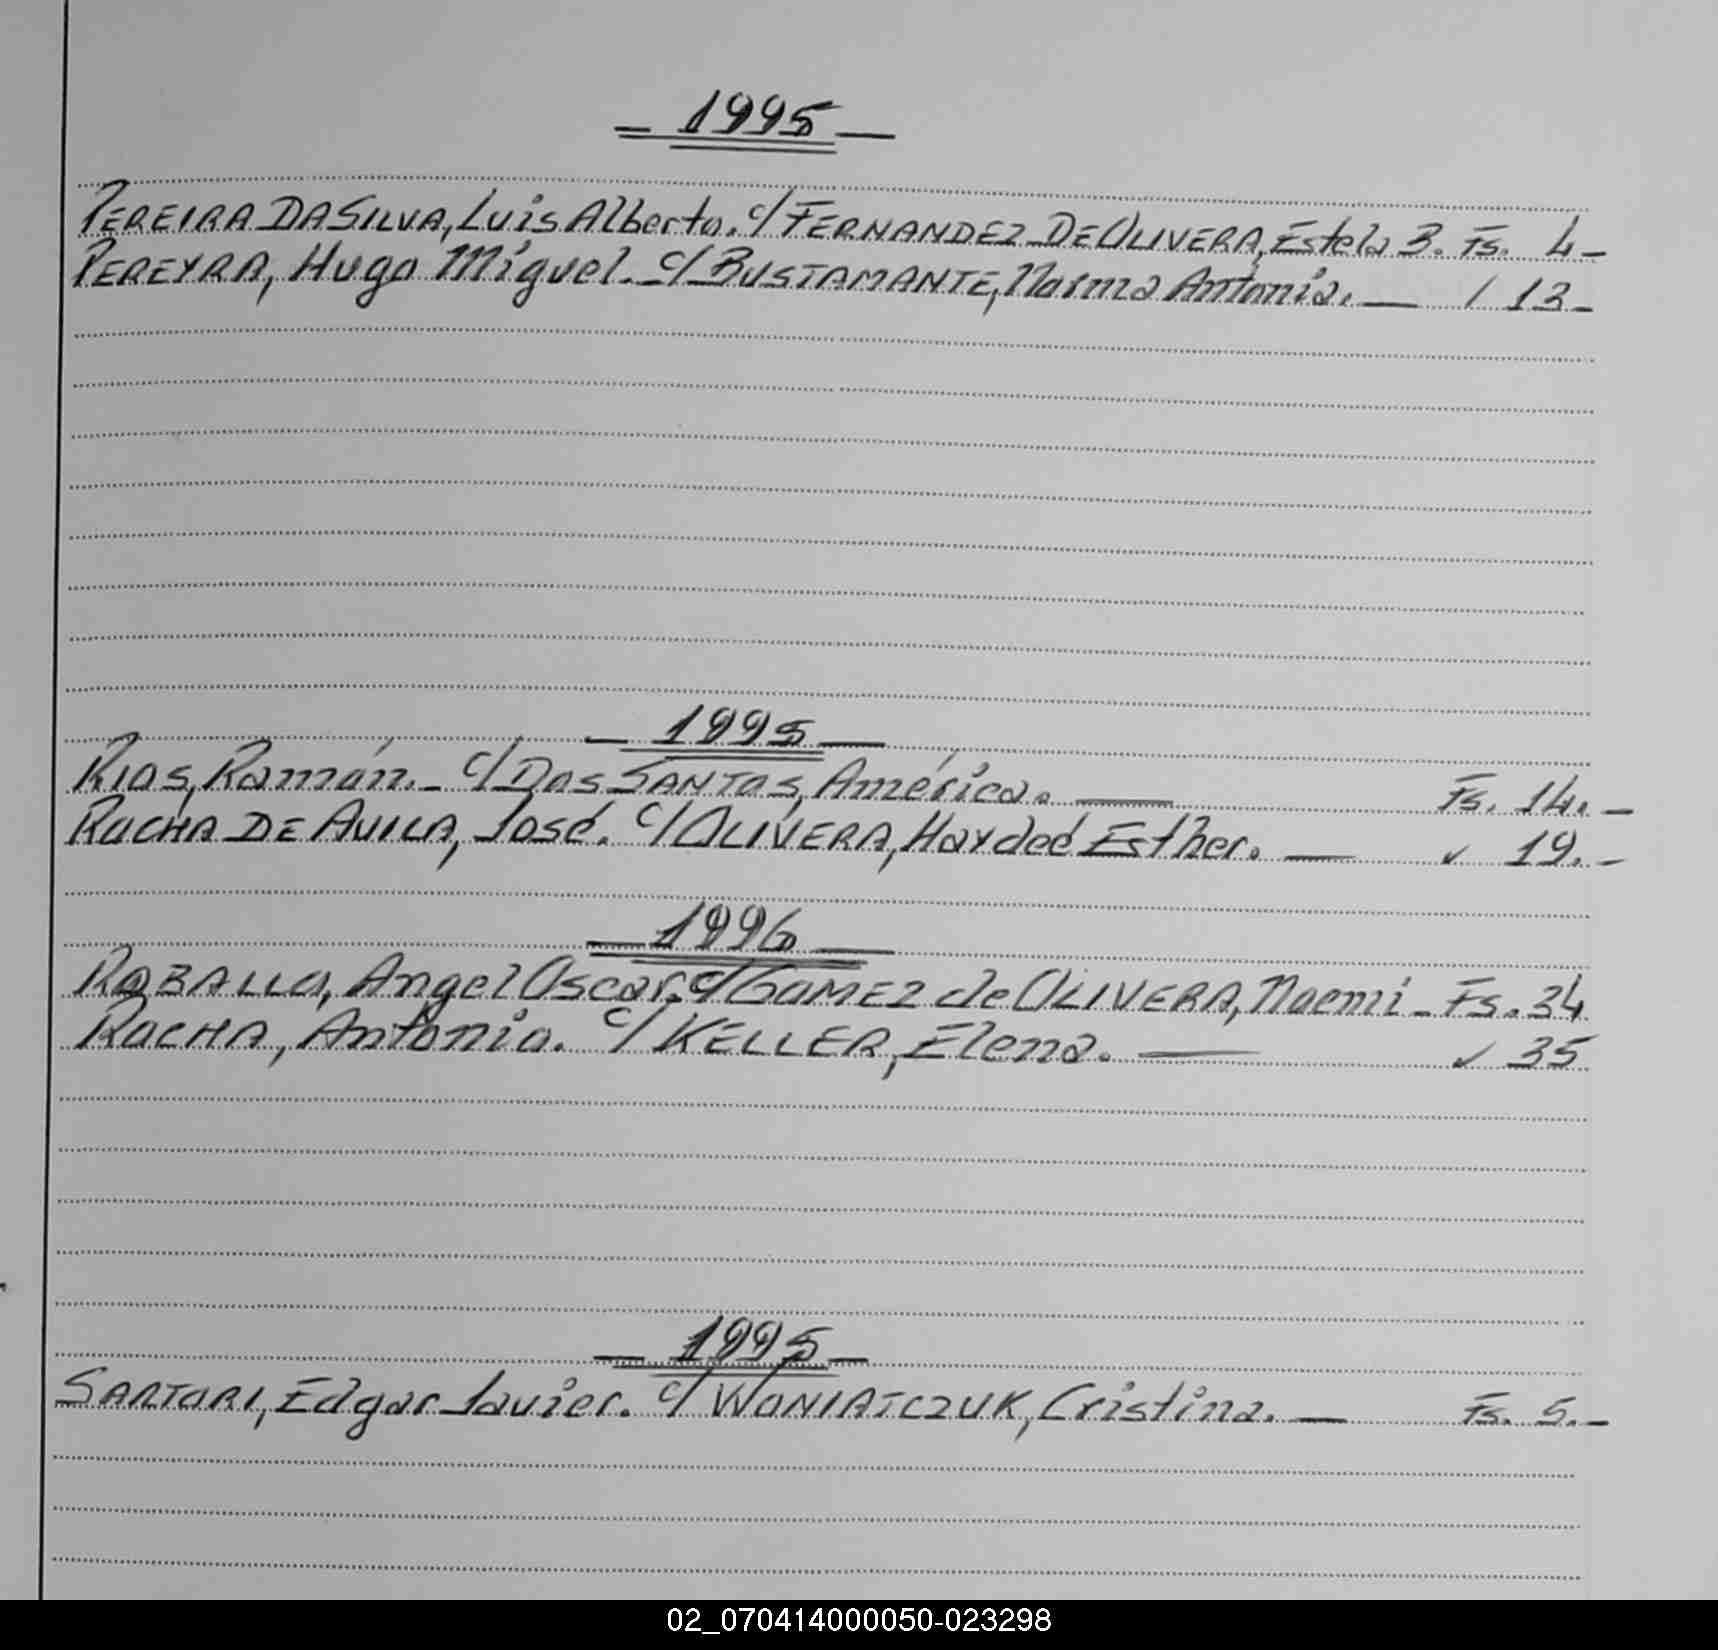 — 1995 —
PEREIRA DA SILVA, Luis Alberto. c/ FERNANDEZ DE OLIVERA, Estela B. Fs. 4-
PEREYRA, Hugo Miguel. c/ BUSTAMANTE, Norma Antonia. — / 13-
— 1995 —
RIOS, Ramón.- c/ DOS SANTOS, América. — Fs. 14.-
ROCHA DE AVILA, José. c/ OLIVERA, Haydeé Esther. — ✓ 19.-
— 1996 —
RABALLO, Angel Oscar. c/ GOMEZ de OLIVERA, Noemi - Fs. 34
ROCHA, Antonio. c/ KELLER, Elena. — ✓ 35
— 1995 —
SARTORI, Edgar Javier. c/ WONIATCZUK, Cristina. — Fs. 5.-
02_070414000050-023298